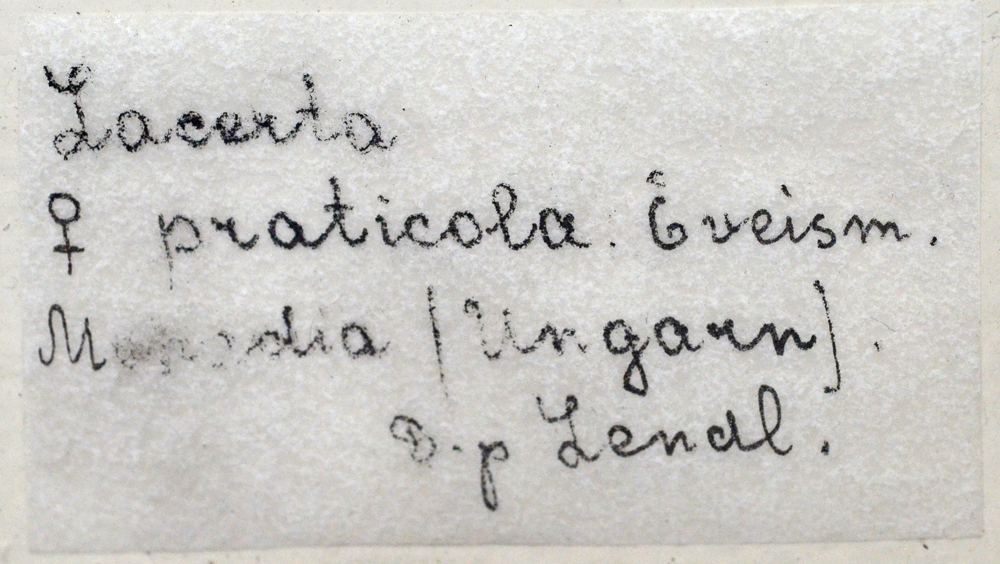 Lacerta
♀ praticola. Eveism.
(Ungarn).
D.p Lendl.